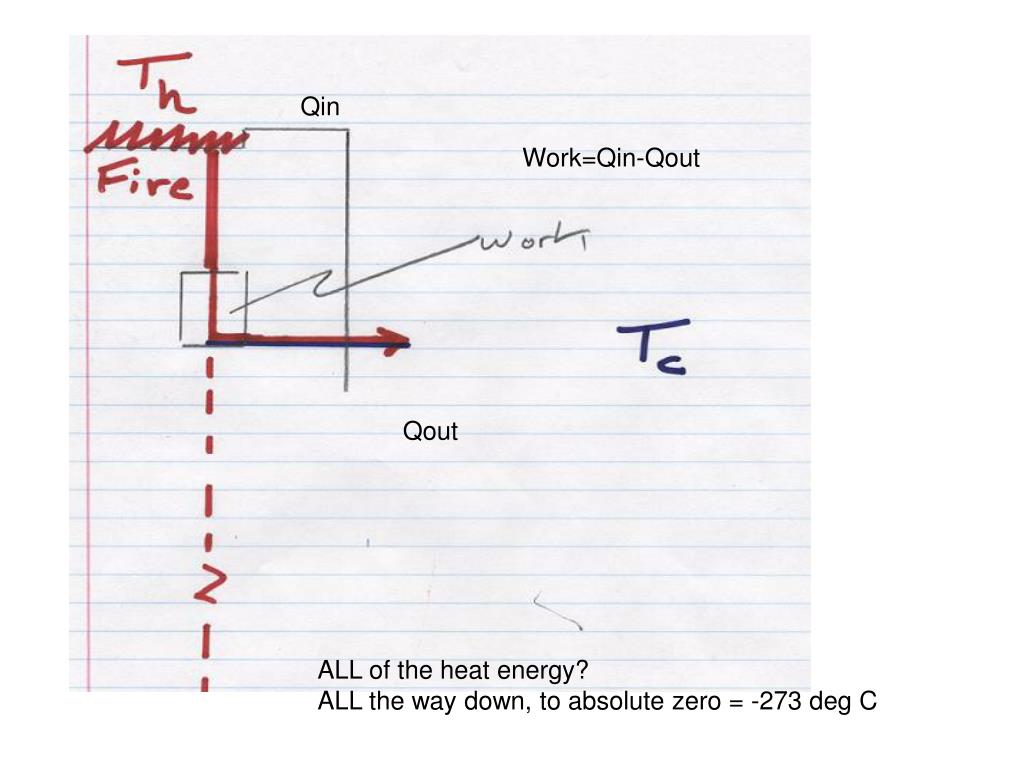 Th
Qin
Fire
Work=Qin-Qout
Work
Tc
Qout
ALL of the heat energy?
ALL the way down, to absolute zero = -273 deg C